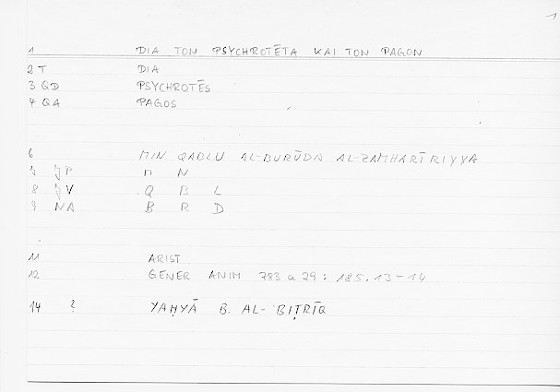 1
1 DIA TON PSYCHROTĒTA KAI TON PAGON
2 T DIA
3 QD PSYCHROTĒS
4 QA PAGOS
6 MIN QABLU AL-BURŪDA AL-ZAMHARĪRIYYA
7 JP M N
8 JV Q B L
9 NA B R D
11 ARIST
12 GENER ANIM 783 a 29 : 185.13-14
14 ? YAḤYĀ B. AL-BIṬRĪQ